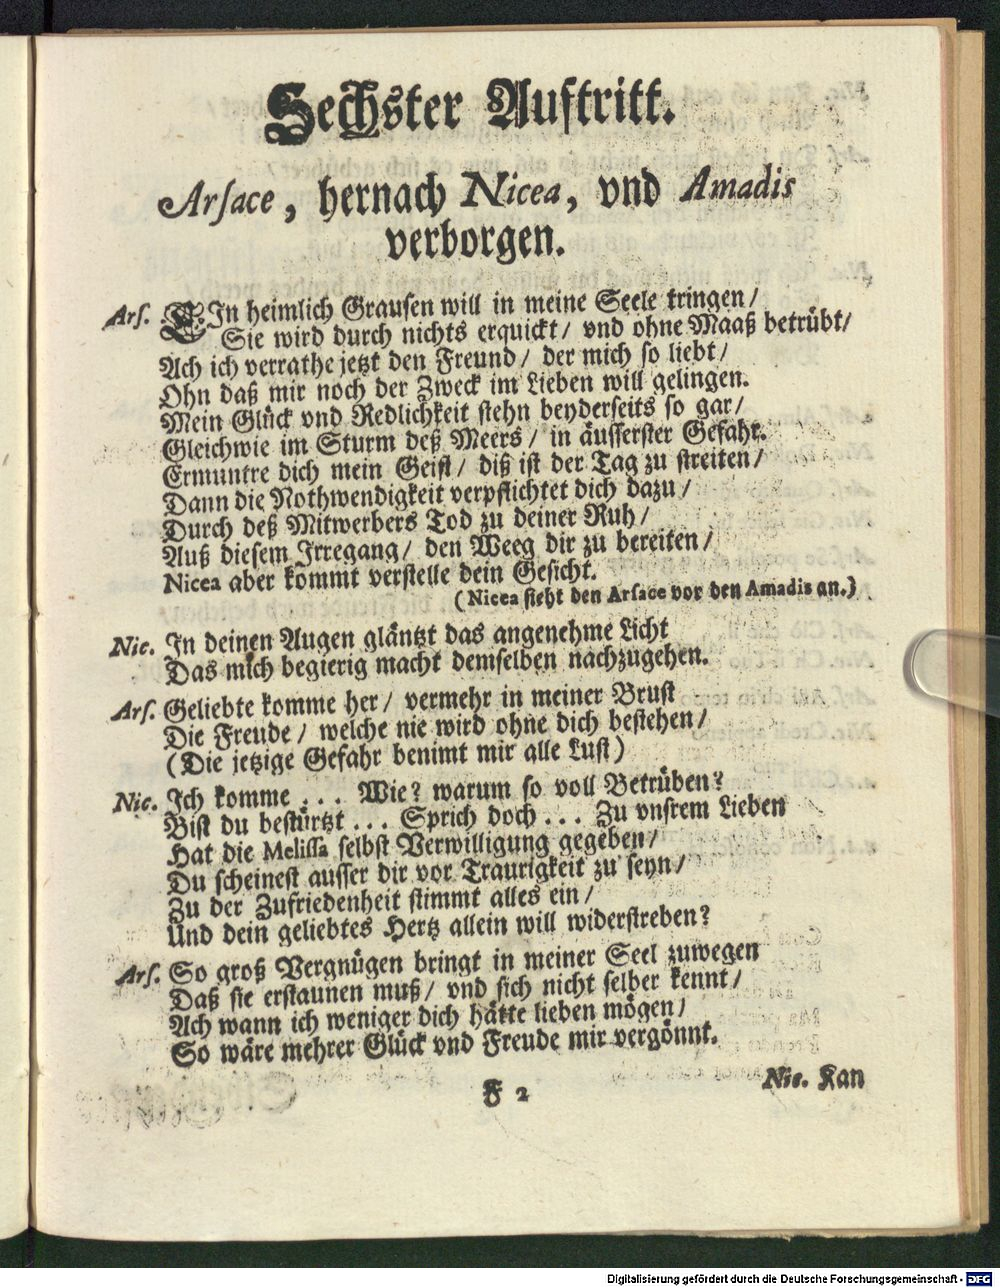 Sechster Auftritt.
Arsace, hernach Nicea, vnd Amadis
verborgen.
Ars. EIn heimlich Grausen will in meine Seele tringen/
Sie wird durch nichts erquickt/ vnd ohne Maaß betrübt/
Ach ich verrathe jetzt den Freund/ der mich so liebt/
Ohn daß mir noch der Zweck im Lieben will gelingen.
Mein Glück vnd Redlichkeit stehn beyderseits so gar/
Gleichwie im Sturm deß Meers/ in äusserster Gefahr.
Ermuntre dich mein Geist/ diß ist der Tag zu streiten/
Dann die Nothwendigkeit verpflichtet dich dazu/
Durch deß Mitwerbers Tod zu deiner Ruh/
Auß diesem Irregang/ den Weeg dir zu bereiten/
Nicea aber kommt verstelle dein Gesicht.
(Nicea sieht den Arsace vor den Amadis an.)
Nic. In deinen Augen gläntzt das angenehme Licht
Das mich begierig macht demselben nachzugehen.
Ars. Geliebte komme her/ vermehr in meiner Brust
Die Freude/ welche nie wird ohne dich bestehen/
(Die jetzige Gefahr benimt mir alle Lust)
Nic. Ich komme ... Wie? warum so voll Betrüben?
Bist du bestürtzt ... Sprich doch ... Zu vnsrem Lieben
Hat die Melissa selbst Verwilligung gegeben/
Du scheinest ausser dir vor Traurigkeit zu seyn/
Zu der Zufriedenheit stimmt alles ein/
Und dein geliebtes Hertz allein will widerstreben?
Ars. So groß Vergnügen bringt in meiner Seel zuwegen
Daß sie erstaunen muß/ vnd sich nicht selber kennt/
Ach wann ich weniger dich hätte lieben mögen/
So wäre mehrer Glück vnd Freude mir vergönnt.
F 2
Nic. Kan
Digitalisierung gefördert durch die Deutsche Forschungsgemeinschaft - DFG